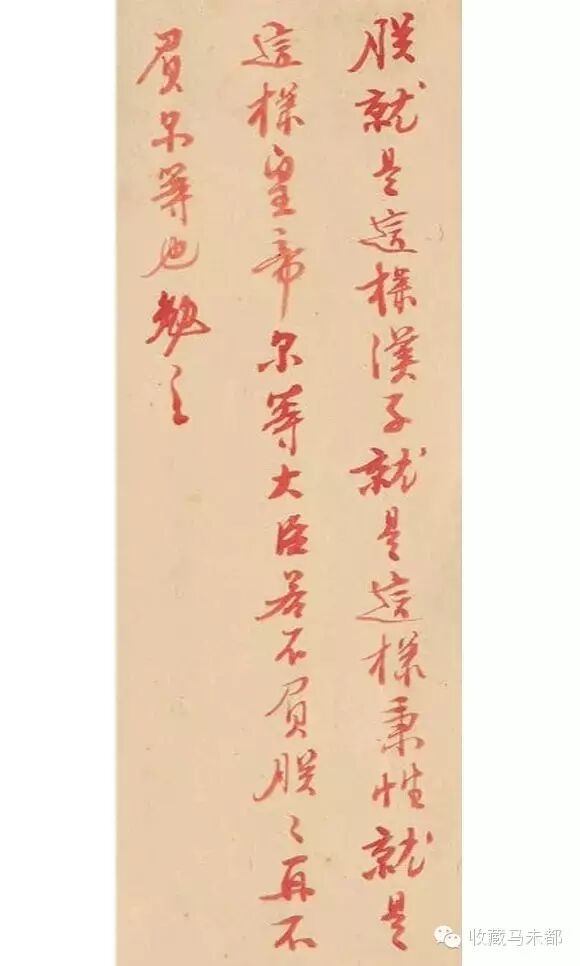 朕就是這樣漢子就是這樣秉性就是
這樣皇帝尔等大臣若不負朕〻再不
負尔等也勉之
收藏马未都